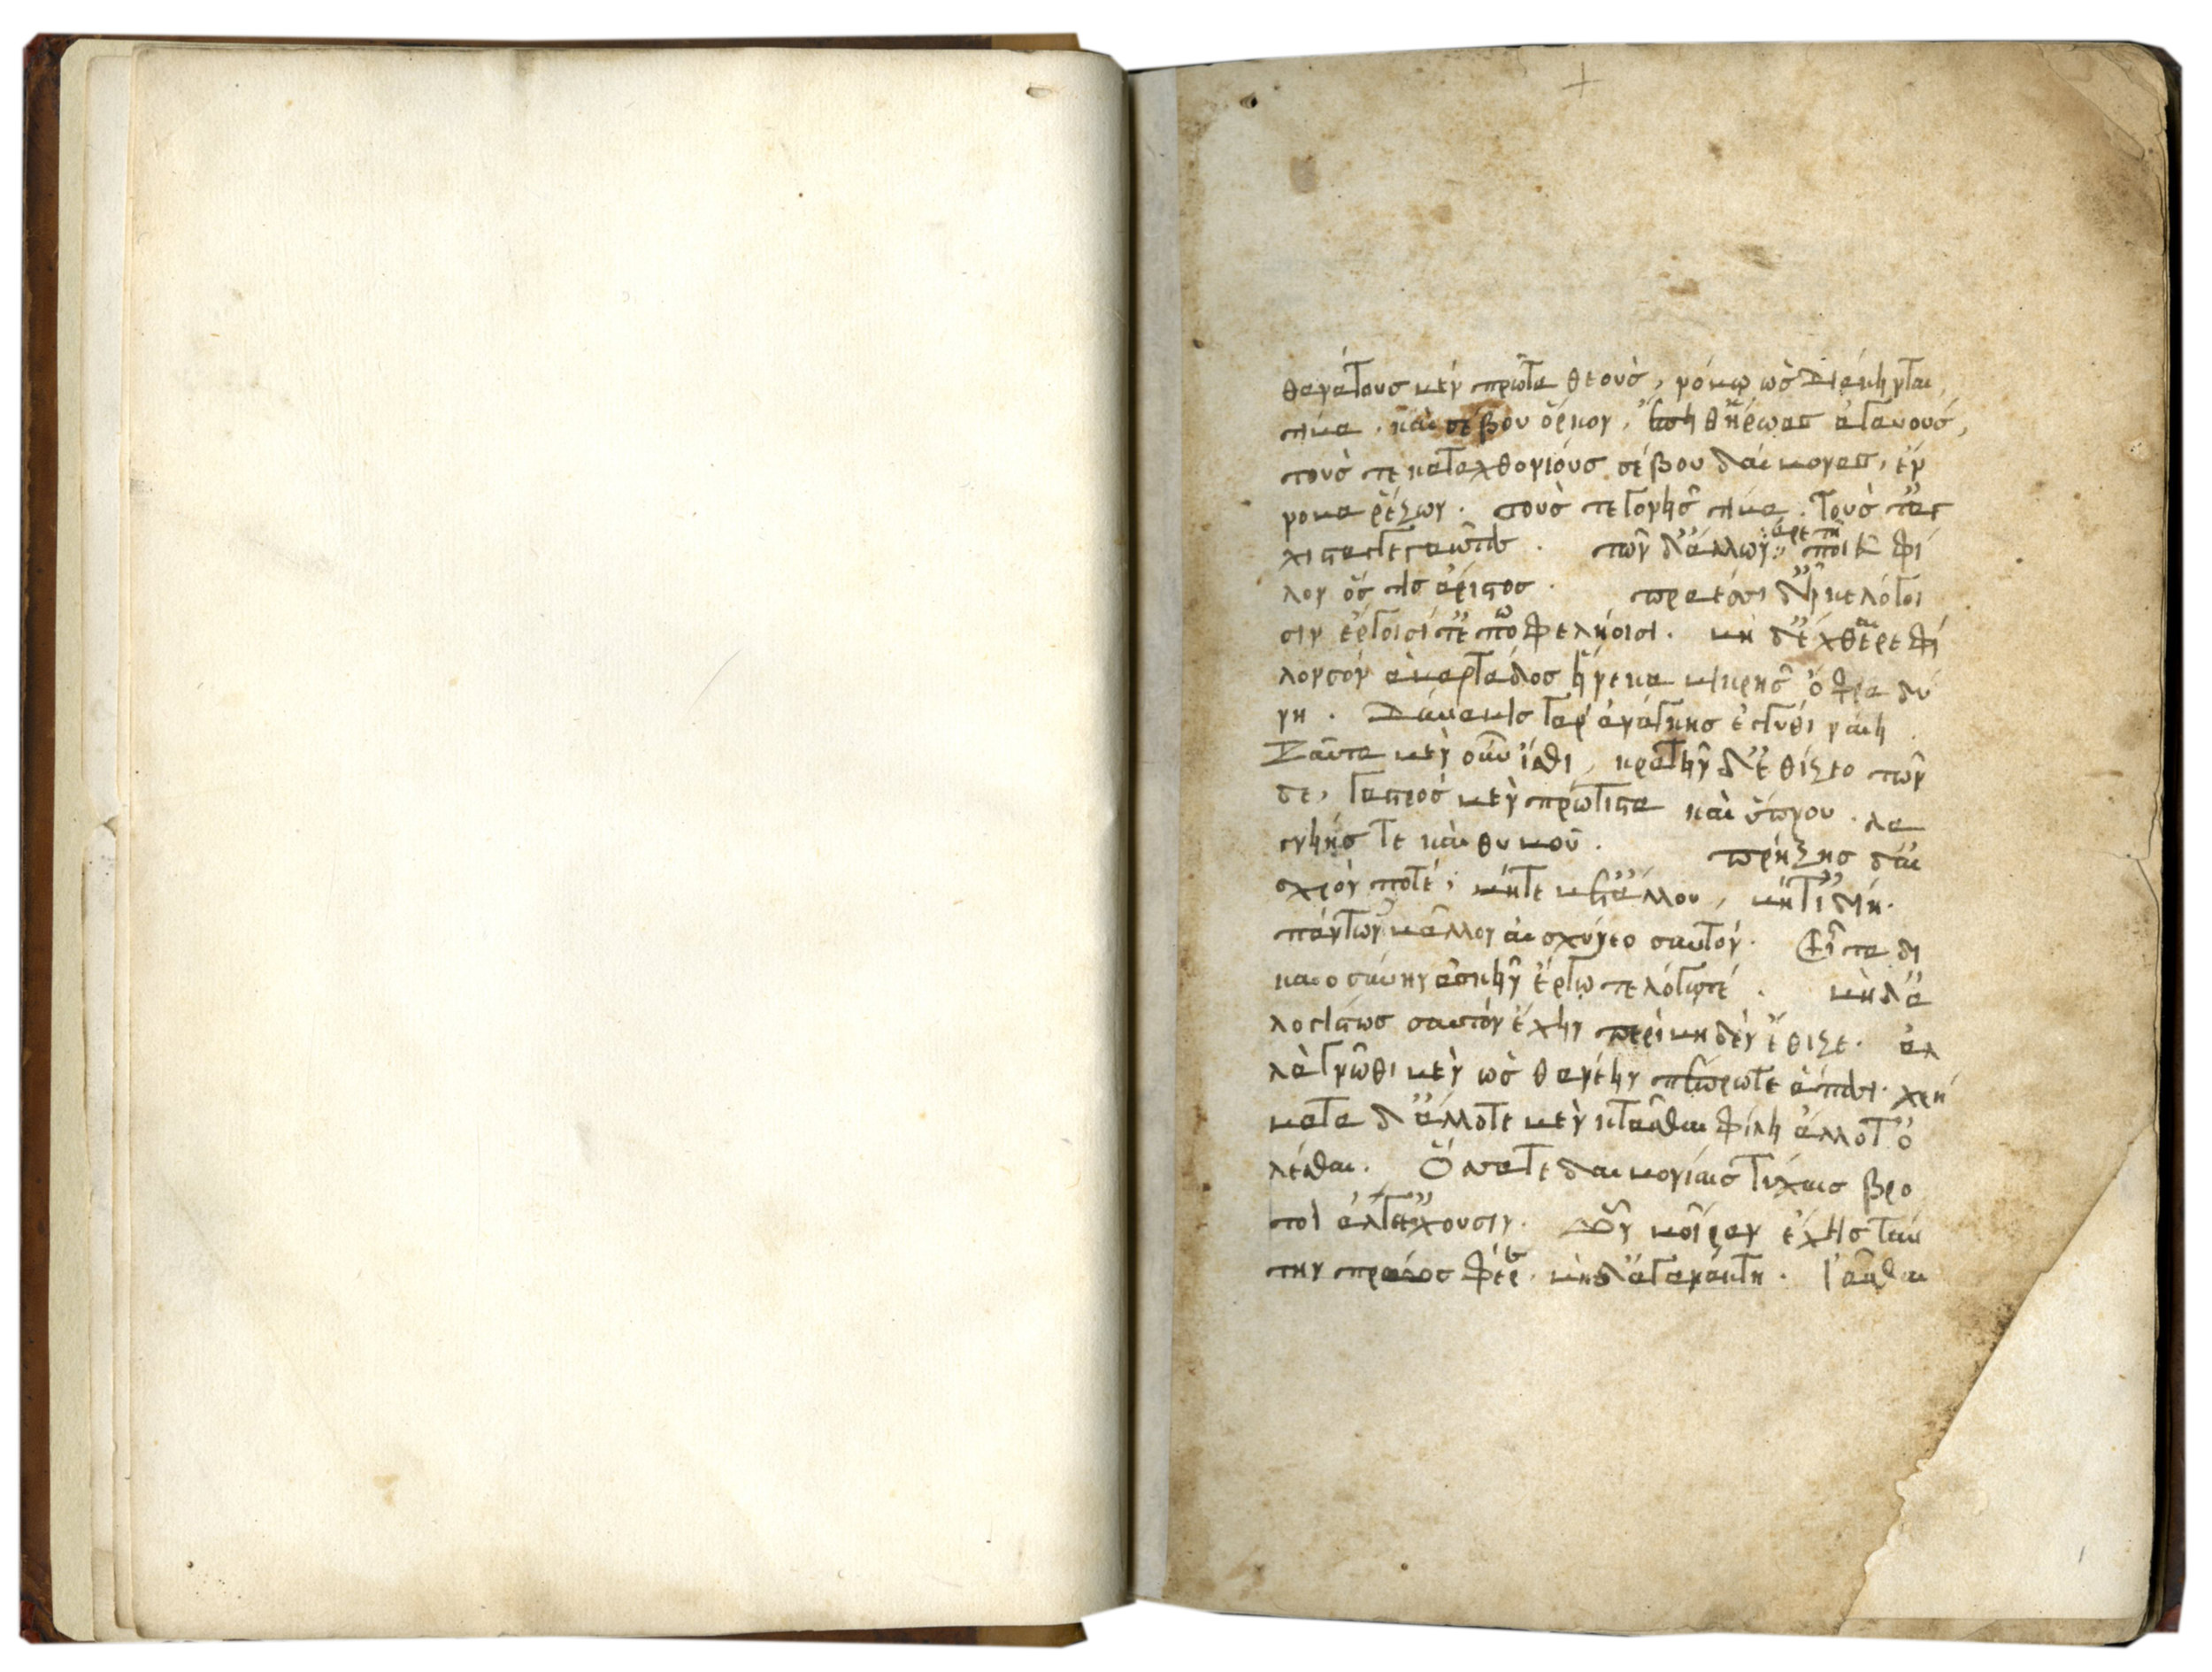 θανάτους μὲν πρῶτα θεοὺς, νόμῳ ὡς διάκεινται,
τίμα. καὶ σέβου ὅρκον, ἔπειθ' ἥρωας ἀγαυούς,
τοὺς τε καταχθονίους σέβου δαίμονας, ἔν
νομα ῥέζων. τοὺς τε γονεῖς τίμα. τοὺς τ' ἄγ
χιστ' ἐκγεγαῶτας. τῶν δ' ἄλλων ἀρετῇ ποιεῦ φί
λον ὅς τις ἄριστος. πραέσι δ' εἶκε λόγοι
σιν ἔργοισί τ' ἐπωφελήοισι. μὴ δ' ἔχθαιρε φί
λον σὸν ἁμαρτάδος εἵνεκα μικρῆς ὄφρα δύ
νῃ. Δύναμις γὰρ ἀνάγκης ἐγγύθι ναίει.
Ταῦτα μὲν οὕτως ἴσθι, κρατεῖν δ' ἐθίζεο τῶν
δε, γαστρὸς μὲν πρώτιστα καὶ ὕπνου. λα
γνείης τε καὶ θυμοῦ. πρήξῃς δ' αἰ
σχρὸν ποτέ, μήτε μετ' ἄλλου, μήτ' ἰδίῃ.
πάντων μᾶλλον αἰσχύνεο σαυτόν. Εἶτα δι
καιοσύνην ἀσκεῖν ἔργῳ τε λόγῳ τέ. μὴ δ' ἀ
λογίστως σαυτὸν ἔχειν περὶ μηδὲν ἔθιζε. ἀλ
λὰ γνῶθι μὲν ὡς θανέειν πέπρωται ἅπασι. χρή
ματα δ' ἄλλοτε μὲν κτᾶσθαι φίλει ἄλλοτ' ὀ
λέσθαι. Ὅσσα τε δαιμονίαις τύχαις βρο
τοὶ ἄλγε' ἔχουσιν. ὧν μοῖραν ἔχῃς ταύ
την πράως φέρε. μὴ δ' ἀγανάκτει. ἰᾶσθαι